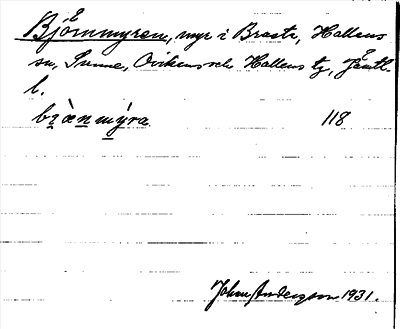 Björnmyren, myr i Braste, Hallens
sn, Sunne, Oviken och Hallens tg, Jämtl.
l.
bi̯ànmýra 118
Johan Andersson 1931.